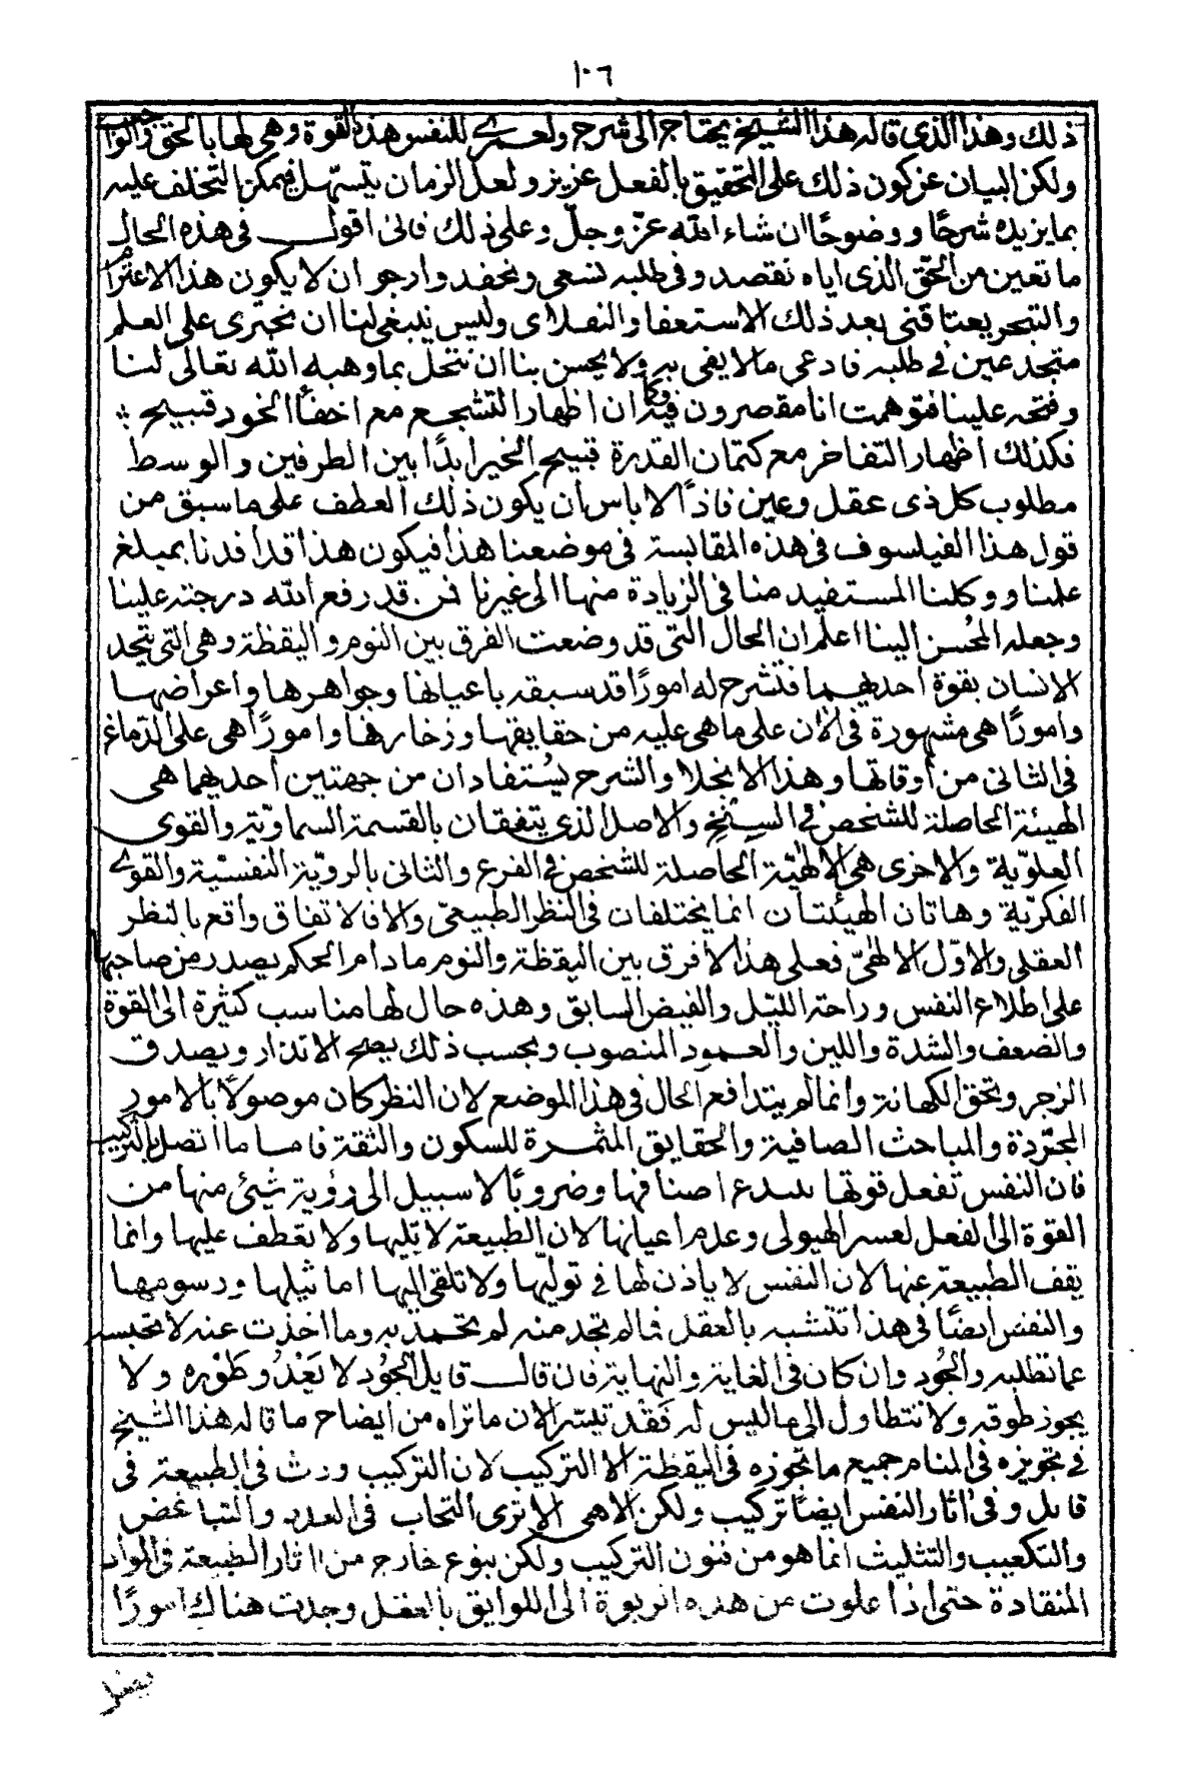 ١٠٦
ذلك وهذا الذى قاله هذا الشيخ يحتاج الى شرح ولعمرى للنفس هذه القوة وهى لها بالحق والواجب
ولكن البيان عن كون ذلك على التحقيق بالفعل عزيز ولعل الزمان يتسهل فيمكن التخلف عليه
بما يزيده شرحًا ووضوحًا ان شاء الله عزّ وجلّ وعلى ذلك فانى اقول فى هذه الحال
ما تعين من الحقّ الذى اياه نقصد وفى طلبه نسعى ونحفد وارجو ان لا يكون هذا الاعتزام
والتبحر يعتاقنى بعد ذلك الاستعفا والنصلاى وليس ينبغى لنا ان نجترى على العلم
متجدعين فى طلبه فادعى ما لا يفى به ولا يحسن بنا ان نتحل بما وهبه الله تعالى لنا
وفتحه علينا فتوهمت انا مقصرون فيه فكما ان اظهار التشجع مع اخفأ الخود قبيح
فكذلك اظهار التفاخر مع كتمان القدرة قبيح الخير ابدًا بين الطرفين والوسط
مطلوب كل ذى عقل وعين فاذًا لا باس ان يكون ذلك العطف على ما سبق من
قول هذا الفيلسوف فى هذه المقابسة فى موضعنا هذا فيكون هذا قد افدنا بمبلغ
علمنا ووكلنا المستفيد منا فى الزيادة منها الى غيرنا فمن قد رفع الله درجته علينا
وجعله المحُسن الينا اعلم ان الحال التى قد وضعت الفرق بين النوم واليقظة وهى التى يتحد
الانسان بقوة احديهما فتشرح له امورًا قد سبقه باعيانها وجواهرها واعراضها
وامورًا هى مشهورة فى الان على ما هى عليه من حقايقها وزخارفها وامورًا هى على الدماغ
فى الثانى من أوقاتها وهذا الانجلا والشرح يُستفادان من جهتين احديهما هى
الهيئة الحاصلة للشخص فى السِنْخِ والاصل الذى يتفقان بالقسمة السماويّة والقوى
العلويّة والاخرى هى الالهيّة الحاصلة للشخص فى الفرع والثانى بالرويّة النفسيّة والقوى
الفكريّة وهاتان الهيئتان انما يختلفان فى النظر الطبيعىّ والا فالاتفاق واقع بالنظر
العقلى والاوّل الالهىّ فعلى هذا لا فرق بين اليقظة والنوم ما دام الحكم يصدر من صاحبها
على اطلاع النفس وراحة الليل والفيض السابق وهذه حال لها مناسب كثيرة الى القوة
والضعف والشدة واللين والعمود المنصوب وبحسب ذلك يصح الانذار ويصدق
الزجر وتحق الكهانة وانما لم يتدافع الحال فى هذا الموضع لان النظر كان موصولًا بالامور
المجرّدة والمباحث الصافية والحقايق المثمرة للسكون والثقة فاما ما اتصل بالتركيب
فان النفس تفعل قوتها ببدع اصنافها وضروبًا لا سبيل الى رؤية شيئ منها من
القوة الى الفعل لعسر الهيولى وعدم اعيانها لان الطبيعة لا تليها ولا تعطف عليها وانما
يقف الطبيعة عنها لان النفس لا ياذن لها فى توليّها ولا تلقى اليها اماثيلها ورسومها
والنفس ايضًا فى هذا تتشبه بالعقل فما لم تجد منه لم تحمد به وما اخذت عنه لا تحبسه
عما تطلبه والجُود وان كان فى الغاية والنهاية فان قال قايل الجُود لا يَعْدُو طَوْره ولا
يجوز طوقه ولا تتطاول الى ما ليس له فَقَد تيسّر الان ما تراه من ايضاح ما قاله هذا الشيخ
فى تجويزه فى المنام جميع ما تجوزه فى اليقظة الا التركيب لان التركيب ورث فى الطبيعة فى
قابل وفى اثار النفس ايضًا تركيب ولكن الاهى الا ترى التحاب فى العدد والتباغض
والتكعيب والتثليث انما هو من فنون التركيب ولكن بنوع خارج من اثار الطبيعة فى المواد
المنقادة حتى اذا علوت من هذه الربوة الى اللوايق بالعقل وجدت هناك امورًا